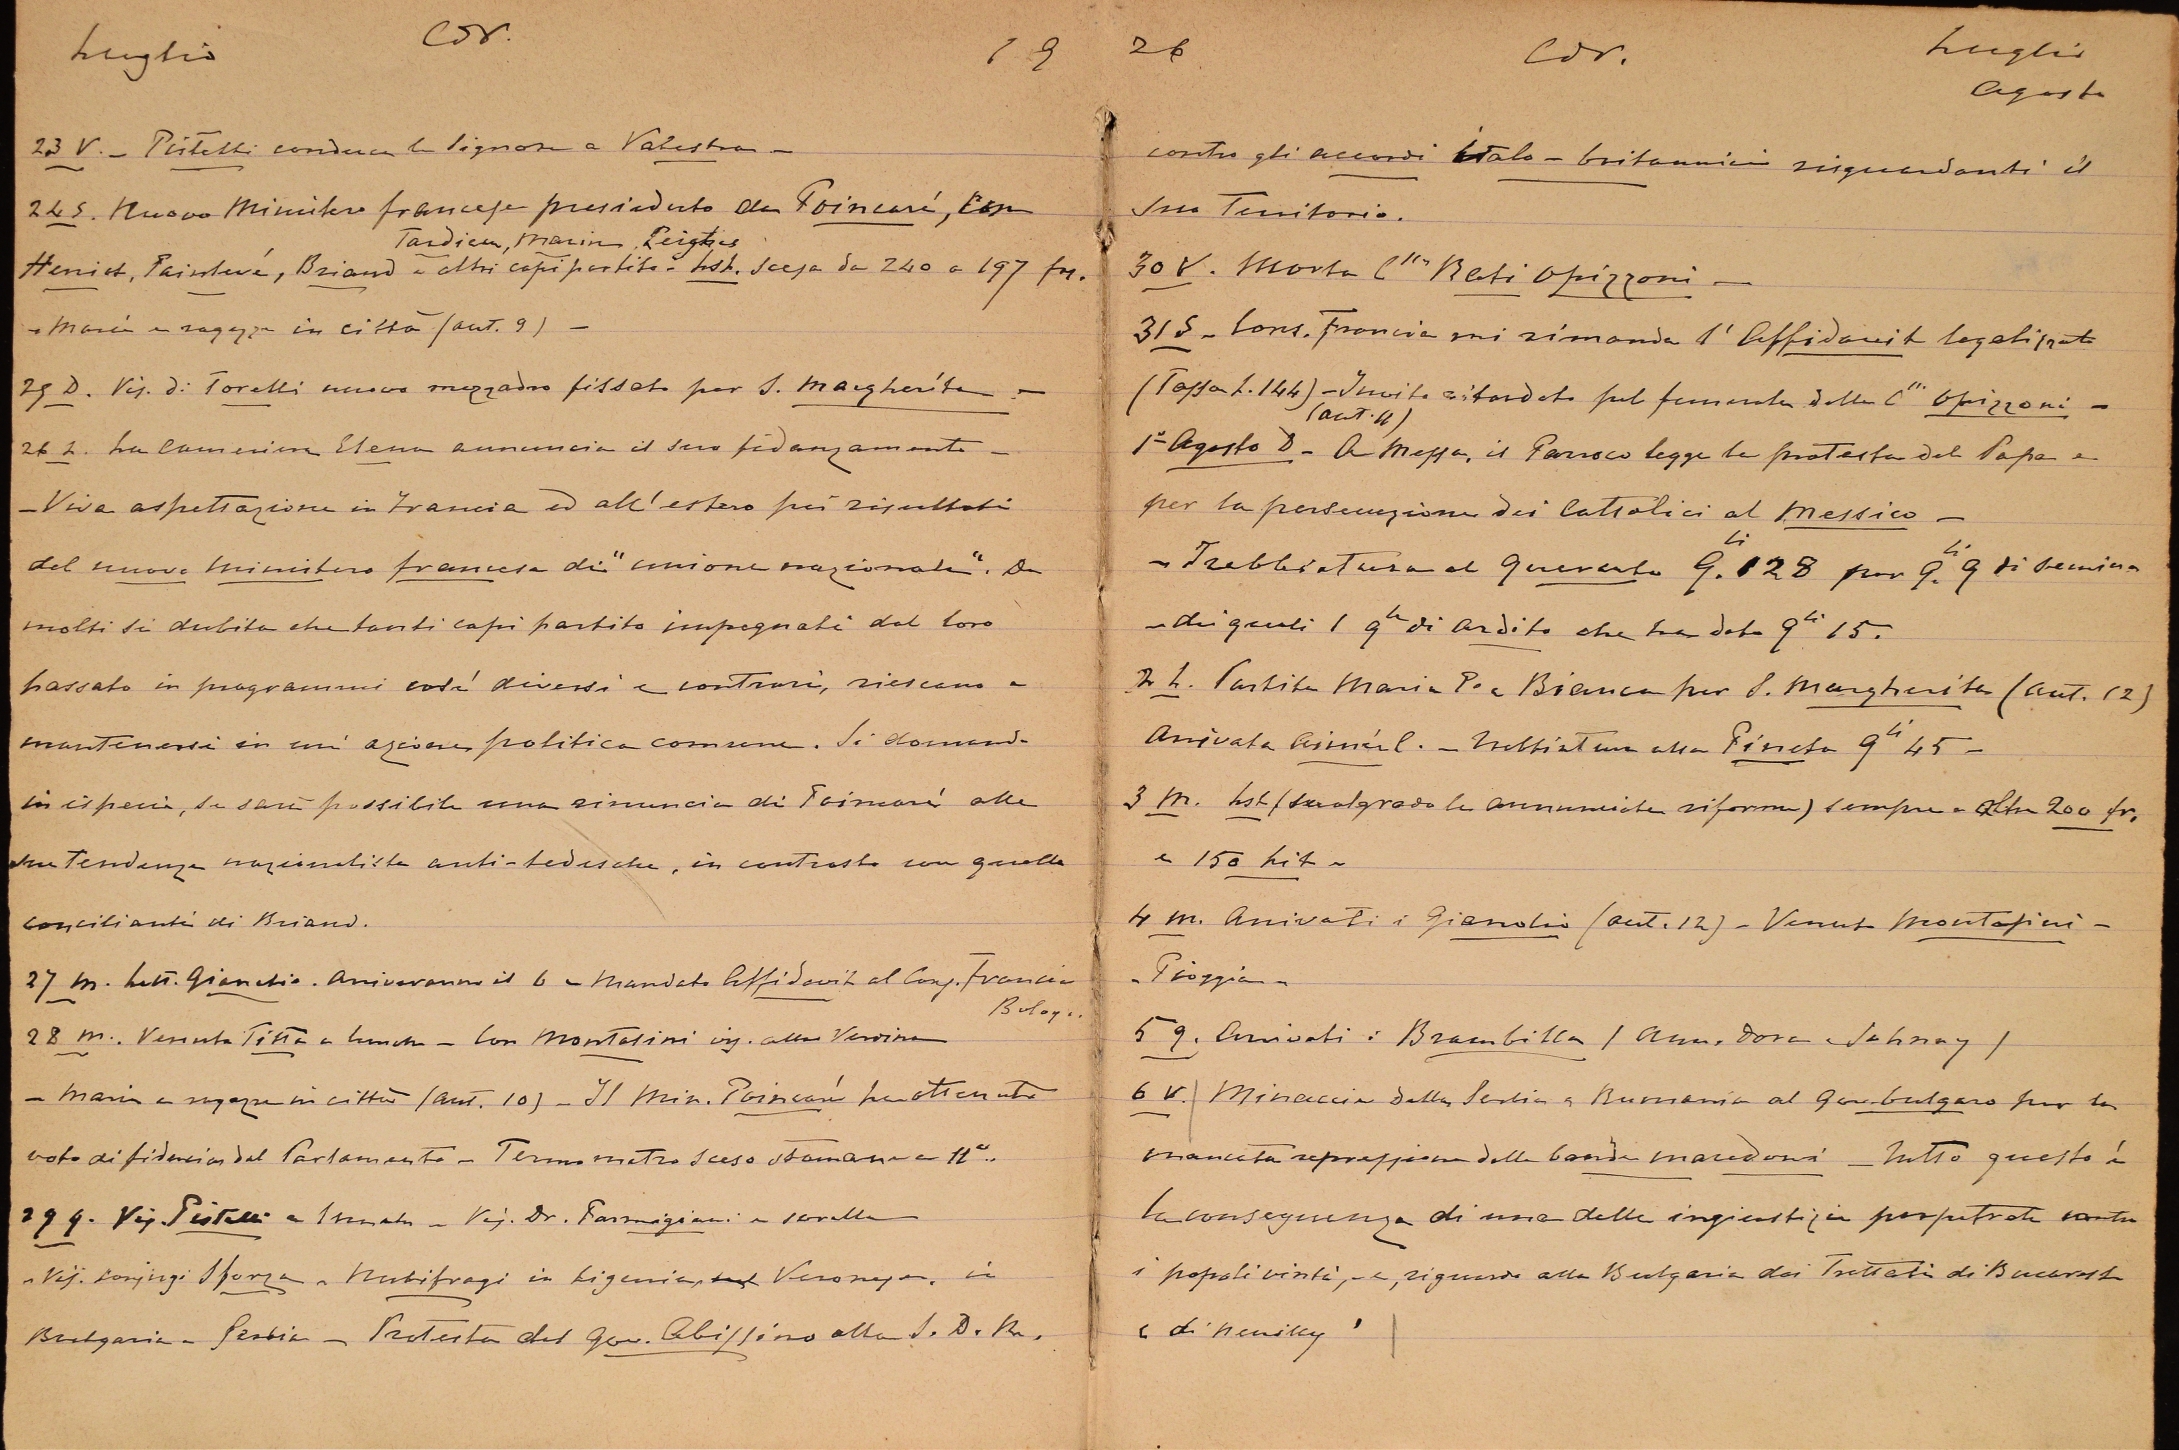 Luglio Cor. 19
23 V. - Pistelli conduce le Signore a Valestra -
24 S. Nuovo Ministero francese presieduto da Poincaré, con
Tardieu, Marin, Leigues
Herriot, Painlevé, Briand e altri capi partito - Lst. scesa da 240 a 197 frs.
- Maria e ragazze in città (aut. 9) -
25 D. Vis. di Torelli nuovo mezzadro fissato per S. Margherita -
26 L. La cameriera Elena annuncia il suo fidanzamento -
- Viva aspettazione in Francia ed all'estero pei risultati
del nuovo Ministero francese di "unione nazionale". Da
molti si dubita che tanti capi partito impegnati dal loro
passato in programmi così diversi e contrari, riescano a
mantenersi in un' azione politica comune. Si domanda
in ispecie, se sarà possibile una rinuncia di Poincaré alle
sue tendenze nazionaliste anti-tedesche, in contrasto con quelle
concilianti di Briand.
27 M. Lett. Gianolio. Arriveranno il 6 - Mandato Affidavit al Cons. Francia
Bologn.
28 M. Venuta Titta a lunch - Con Montasini vis. alla Verdina
- Maria e ragazze in città (aut. 10) - Il Min. Poincaré ha ottenuto
voto di fiducia dal Parlamento - Termometro sceso stamane a 11°.
29 G. Vis. Pistelli a lunch - Vis. Dr. Parmigiani e sorella
- Vis. coniugi Sforza - Nubifragi in Liguria, Veronese, in
Bulgaria e Serbia - Protesta del Gov. Abissino alla S. D. N.
26 Cor. Luglio
Agosto
contro gli accordi italo-britannici risguardanti il
suo Territorio.
30 V. Morta C.ssa Rati Opizzoni -
31 S - Cons. Francia mi rimanda l'Affidavit legalizzato
(Tassa L. 144) - Invito ritardato pel funerale della C.ssa Opizzoni -
(aut. 11)
1° Agosto D - A Messa, il Parroco legge la protesta del Papa
per la persecuzione dei Cattolici al Messico -
- Trebbiatura al Querceto Q.li 128 per Q.li 9 di semina
- dei quali 1 q.le di Ardito che ha dato q.li 15.
2 L. Partite Maria P. e Bianca per S. Margherita (aut. 12)
Arrivata Aimée C. - Trebbiatura alla Pineta Q.li 45 -
3 M. Lst (malgrado le annunciate riforme) sempre a oltre 200 fr.
e 150 Lit -
4 M. Arrivati i Gianolio (aut. 12) - Venuto Montasini -
- Pioggia -
5 G. Arrivati i Brambilla ( Dora e )
6 V. Minaccia della Serbia e Rumania al Gov. bulgaro per la
mancata repressione delle bande macedoni - Tutto questo è
la conseguenza di una delle ingiustizie perpetrate contro
i popoli vinti, - e, riguardo alla Bulgaria dai Trattati di Bucarest
e di Neuilly!